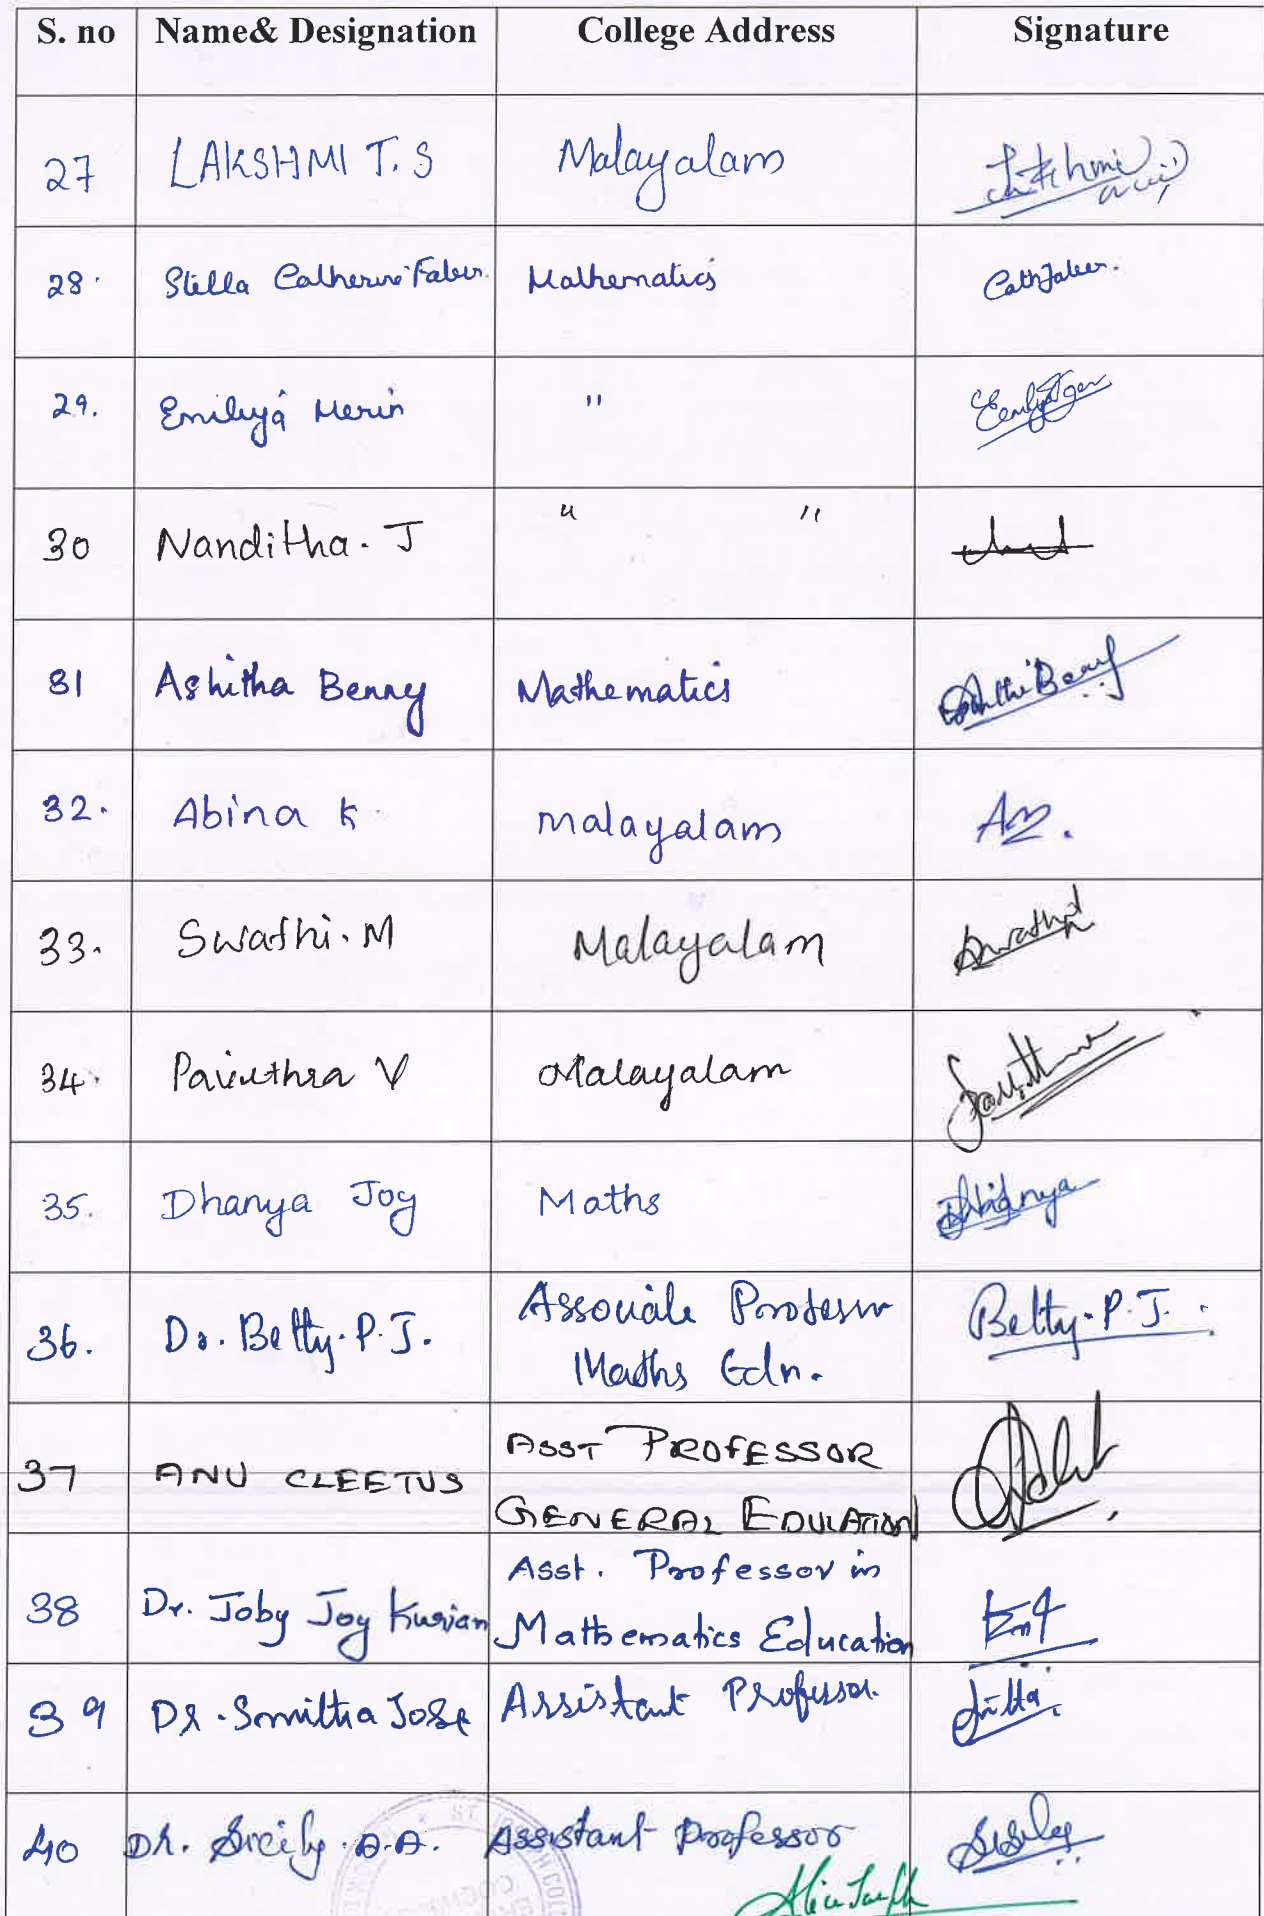 S. no Name& Designation College Address Signature
27 LAKSHMI T. S Malayalam Lakshmi
28. Stella Catherine Faber. Mathematics Cath Faber.
29. Emilya Merin "
30 Nanditha. J " "
31 Ashitha Benny Mathematics
32. Abina K. Malayalam
33. Swathi. M Malayalam Swathi
34. Pavithra V Malayalam
35. Dhanya Joy Maths Dhanya
36. Dr. Betty. P. J. Associate Professor Betty. P. J.
Maths Edn.
37 ANU CLEETUS ASST PROFESSOR
GENERAL EDUCATION
38 Dr. Joby Joy Kurian Asst. Professor in
Mathematics Education
39 Dr. Smitha Jose Assistant Professor.
40 Dr. Sicily A.A. Assistant Professor